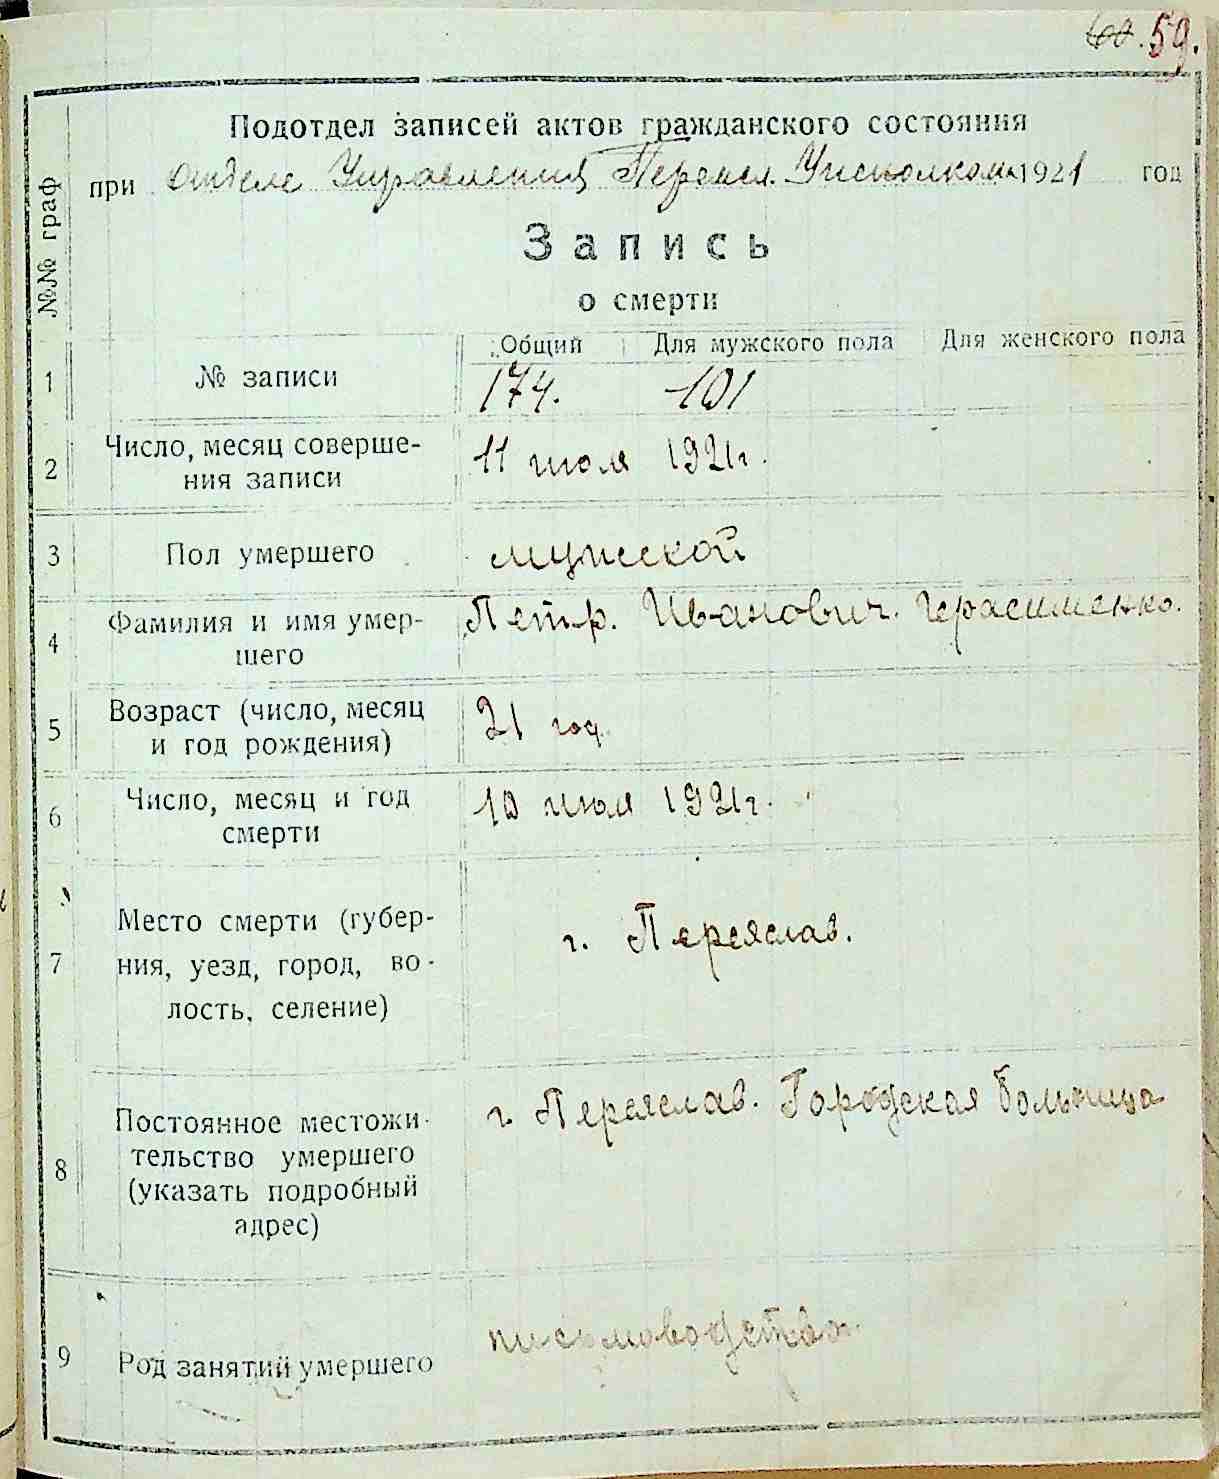 59.
Подотдел записей актов гражданского состояния
при Отделе Управления Переясл. Уисполкома 1921 год
№№ граф
Запись
о смерти
Общий Для мужского пола Для женского пола
1 № записи 174. 101
2 Число, месяц соверше-
ния записи 11 июля 1921г.
3 Пол умершего мужской
4 Фамилия и имя умер-
шего Петр. Иванович. Герасименко.
5 Возраст (число, месяц
и год рождения) 21 год.
6 Число, месяц и год
смерти 10 июля 1921г.
7 Место смерти (губер-
ния, уезд, город, во-
лость, селение) г. Переяслав.
8 Постоянное местожи-
тельство умершего
(указать подробный
адрес) г. Переяслав. Городская больница
9 Род занятий умершего письмоводство.